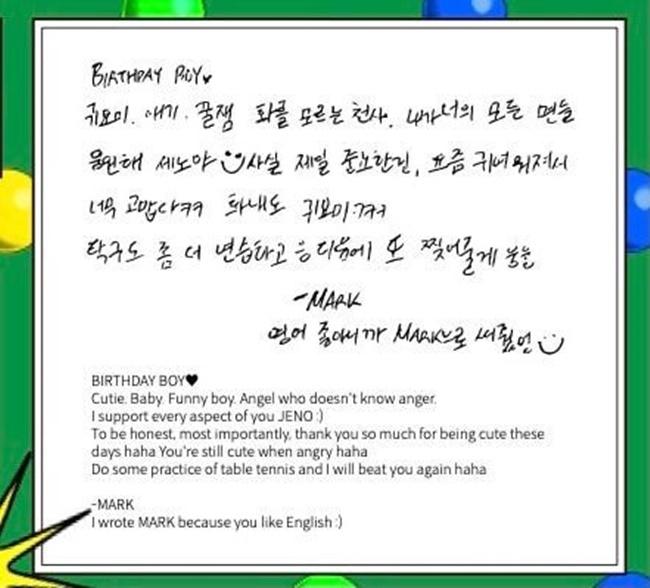 BIRTHDAY BOY♥
귀요미. 애기. 꿀잼 화를 모르는 천사. 내가 너의 모든 면들
응원해 제노야 :) 사실 제일 중요한건, 요즘 귀여워져서
너무 고맙다ㅋㅋ 화내도 귀요미ㅋㅋ
탁구도 좀 더 연습하고 다음에 또 찢어줄게
-MARK
영어 좋아니까 MARK으로 써줬엉 :)
BIRTHDAY BOY♥
Cutie. Baby. Funny boy. Angel who doesn't know anger.
I support every aspect of you JENO :)
To be honest, most importantly, thank you so much for being cute these
days haha You're still cute when angry haha
Do some practice of table tennis and I will beat you again haha
-MARK
I wrote MARK because you like English :)